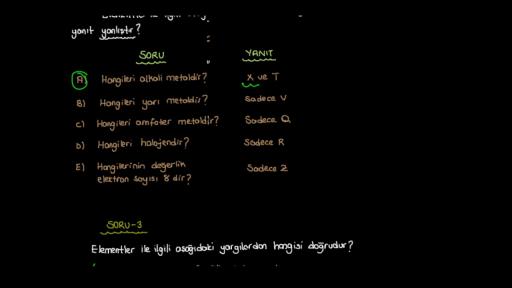 yanıt yanlıştır?
SORU YANIT
A) Hangileri alkali metaldir? X ve T
B) Hangileri yarı metaldir? Sadece V
C) Hangileri amfoter metaldir? Sadece Q
D) Hangileri halojendir? Sadece R
E) Hangilerinin değerlik Sadece Z
elektron sayısı 8 dir?
SORU-3
Elementler ile ilgili aşağıdaki yargılardan hangisi doğrudur?